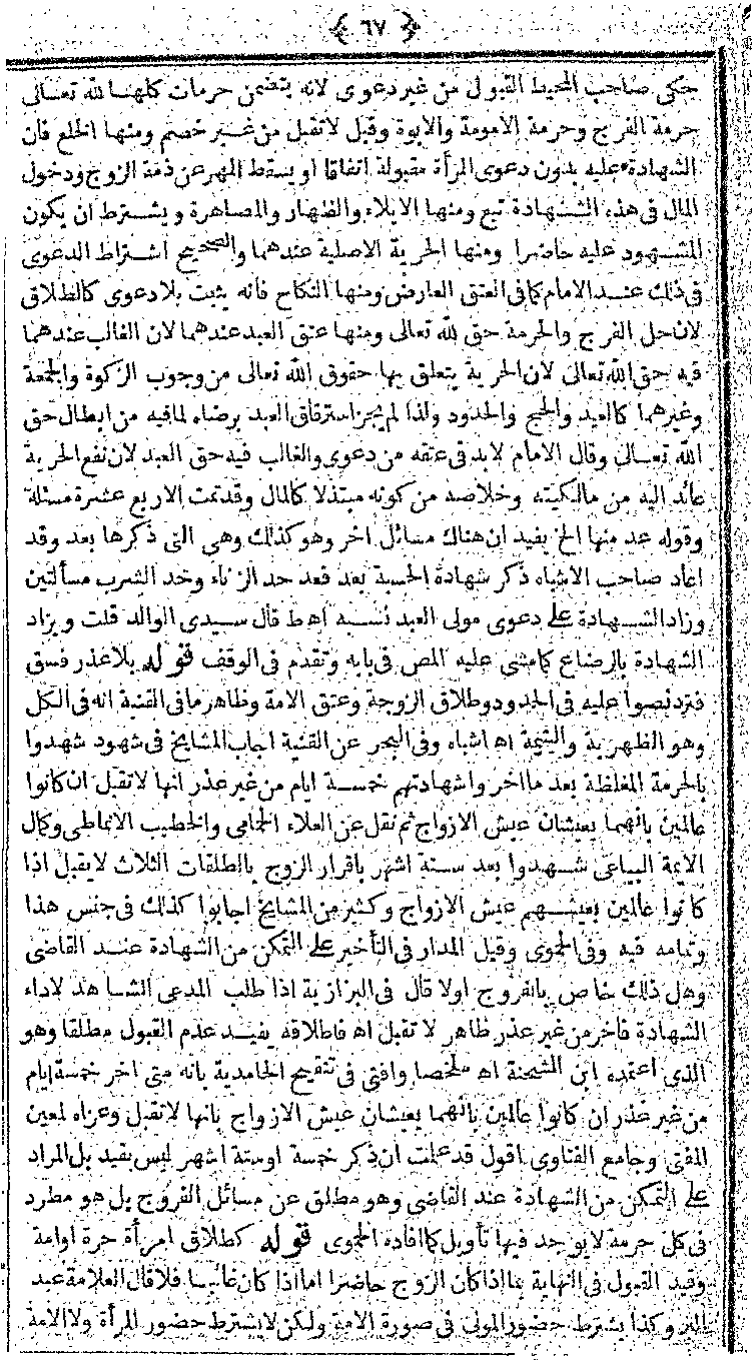 ﴿ ٦٧ ﴾
حكى صاحب المحيط القبول من غير دعوى لانه يتضمن حرمات كلها لله تعالى
حرمة الفرج وحرمة الامومة والابوة وقيل لاتقبل من غير خصم ومنها الخلع فان
الشهادة عليه بدون دعوى المرأة مقبولة اتفاقا او يسقط المهر عن ذمة الزوج ودخول
المال فى هذه الشهادة تبع ومنها الايلاء والظهار والمصاهرة ويشترط ان يكون
المشهود عليه حاضرا ومنها الحرية الاصلية عندهما والصحيح اشتراط الدعوى
فى ذلك عند الامام كما فى العتق العارض ومنها النكاح فانه يثبت بلادعوى كالطلاق
لان حل الفرج والحرمة حق لله تعالى ومنها عتق العبد عندهما لان الغالب عندهما
فيه حق الله تعالى لان الحرية يتعلق بها حقوق الله تعالى من وجوب الزكوة والجمعة
وغيرهما كالعيد والحج والحدود ولذا لم يجز استرقاق العبد برضاه لمافيه من ابطال حق
الله تعالى وقال الامام لابد فى عتقه من دعوى والغالب فيه حق العبد لان نفع الحرية
عائد اليه من مالكيته وخلاصه من كونه مبتذلا كالمال وقدتمت الاربع عشرة مسئلة
وقوله عد منها الخ يفيد ان هناك مسائل اخر وهو كذلك وهى التى ذكرها بعد وقد
اعاد صاحب الاشباه ذكر شهادة الحسبة بعد فعد حد الزناء وحد الشرب مسألتين
وزاد الشهادة على دعوى مولى العبد نسبه اه ط قال سيدى الوالد قلت ويزاد
الشهادة بالرضاع كما مشى عليه المص فى بابه وتقدم فى الوقف قوله بلاعذر فسق
فترد نصوا عليه فى الحدود وطلاق الزوجة وعتق الامة وظاهر مافى القنية انه فى الكل
وهو الظهرية واليتيمة اه اشباه وفى البحر عن القنية اجاب المشايخ فى شهود شهدوا
بالحرمة المغلظة بعد مااخر واشهادتهم خمسة ايام من غير عذر انها لاتقبل ان كانوا
عالمين بانهما يعيشان عيش الازواج ثم نقل عن العلاء الحمامى والخطيب الانماطى وكمال
الايمة البياعى شهدوا بعد ستة اشهر باقرار الزوج بالطلقات الثلاث لايقبل اذا
كانوا عالمين بعيشهم عيش الازواج وكثير من المشايخ اجابوا كذلك فى جنس هذا
وتمامه فيه وفى الحموى وقيل المدار فى التأخير على التمكن من الشهادة عند القاضى
وهل ذلك خاص بالفروج اولا قال فى البزازية اذا طلب المدعى الشاهد لاداء
الشهادة فاخر من غير عذر ظاهر لا تقبل اه فاطلاقه يفيد عدم القبول مطلقا وهو
الذى اعتمده ابن الشحنة اه ملخصا وافتى فى تنقيح الحامدية بانه متى اخر خمسة ايام
من غير عذر ان كانوا عالمين بانهما يعيشان عيش الازواج بانها لاتقبل وعزاه لمعين
المفتى وجامع الفتاوى اقول قد علمت ان ذكر خمسة اوستة اشهر ليس بقيد بل المراد
على التمكن من الشهادة عند القاضى وهو مطلق عن مسائل الفروج بل هو مطرد
فى كل حرمة لايوجد فيها تأويل كما افاده الحموى قوله كطلاق امرأة حرة اوامة
وقيد القبول فى النهاية بما اذا كان الزوج حاضرا اما اذا كان غائبا فلا قال العلامة عبد
البر وكذا يشترط حضور المولى فى صورة الامة ولكن لايشترط حضور المرأة ولا الامة